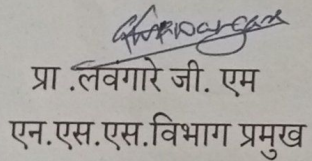 प्रा .लवंगारे जी. एम
एन.एस.एस.विभाग प्रमुख